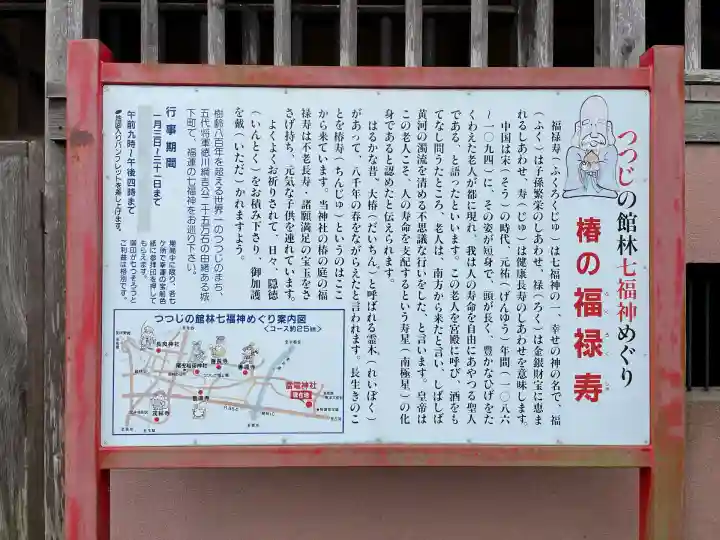 つつじの館林七福神めぐり
椿の福禄寿
福禄寿（ふくろくじゅ）は七福神の一、幸せの神の名で、福
（ふく）は子孫繁栄のしあわせ、禄（ろく）は金銀財宝に恵ま
れるしあわせ、寿（じゅ）は健康長寿のしあわせを意味します。
中国は宋（そう）の時代、元祐（げんゆう）年間（一〇八六
〜一〇九四）に、その姿が短身で、頭が長く、豊かなひげをた
くわえた老人が都に現れ、我は人の寿命を自由にあやつる聖人
である、と語ったといいます。この老人を宮殿に呼び、酒をも
てなし問うたところ、老人は、南方から来たと言い、しばしば
黄河の濁流を清める不思議な行いをした、と言います。皇帝は
この老人こそ、人の寿命を支配するという寿星（南極星）の化
身であると認めたと伝えられます。
はるかな昔、大椿（だいちん）と呼ばれる霊木（れいぼく）
があって、八千年の春をながらえたと言われます。長生きのこ
とを椿寿（ちんじゅ）というのはここ
から来ています。当神社の椿の庭の福
禄寿は不老長寿・諸願満足の宝玉をさ
さげ持ち、元気な子供を連れています。
よくよくお祈りされて、日々、隠徳
（いんとく）をお積み下さり、御加護
を戴（いただ）かれますよう。
樹齢八百年を超える世界一のつつじのまち、
五代将軍徳川綱吉公二十五万石の由緒ある城
下町で、福運の七福神をお巡り下さい。
行事期間
一月三日〜三十一日まで
午前九時〜午後四時まで
境内に散り、各七
ケ所で幸運の宝船色
紙に参拝印を押して
もらえます。
御印が七つそろうと
ご利益は格別です。
つつじの館林七福神めぐり案内図
＜コース約25㎞＞
長良神社
尾曳稲荷神社
普済寺
雷電神社
現在地